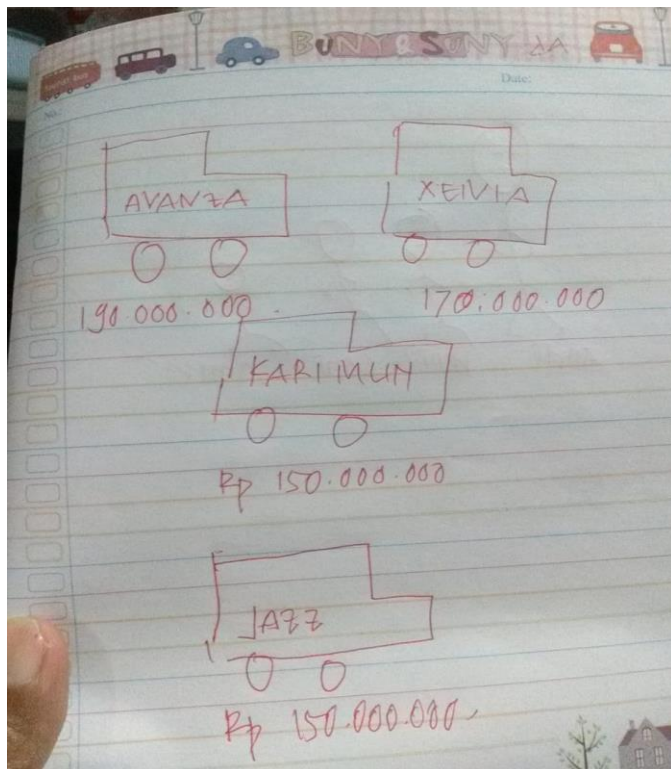 BUNY & SUNY
No:
Date:
AVANZA
XEIVIA
190.000.000
170.000.000
KARIMUN
Rp 150.000.000
JAZZ
Rp 150.000.000